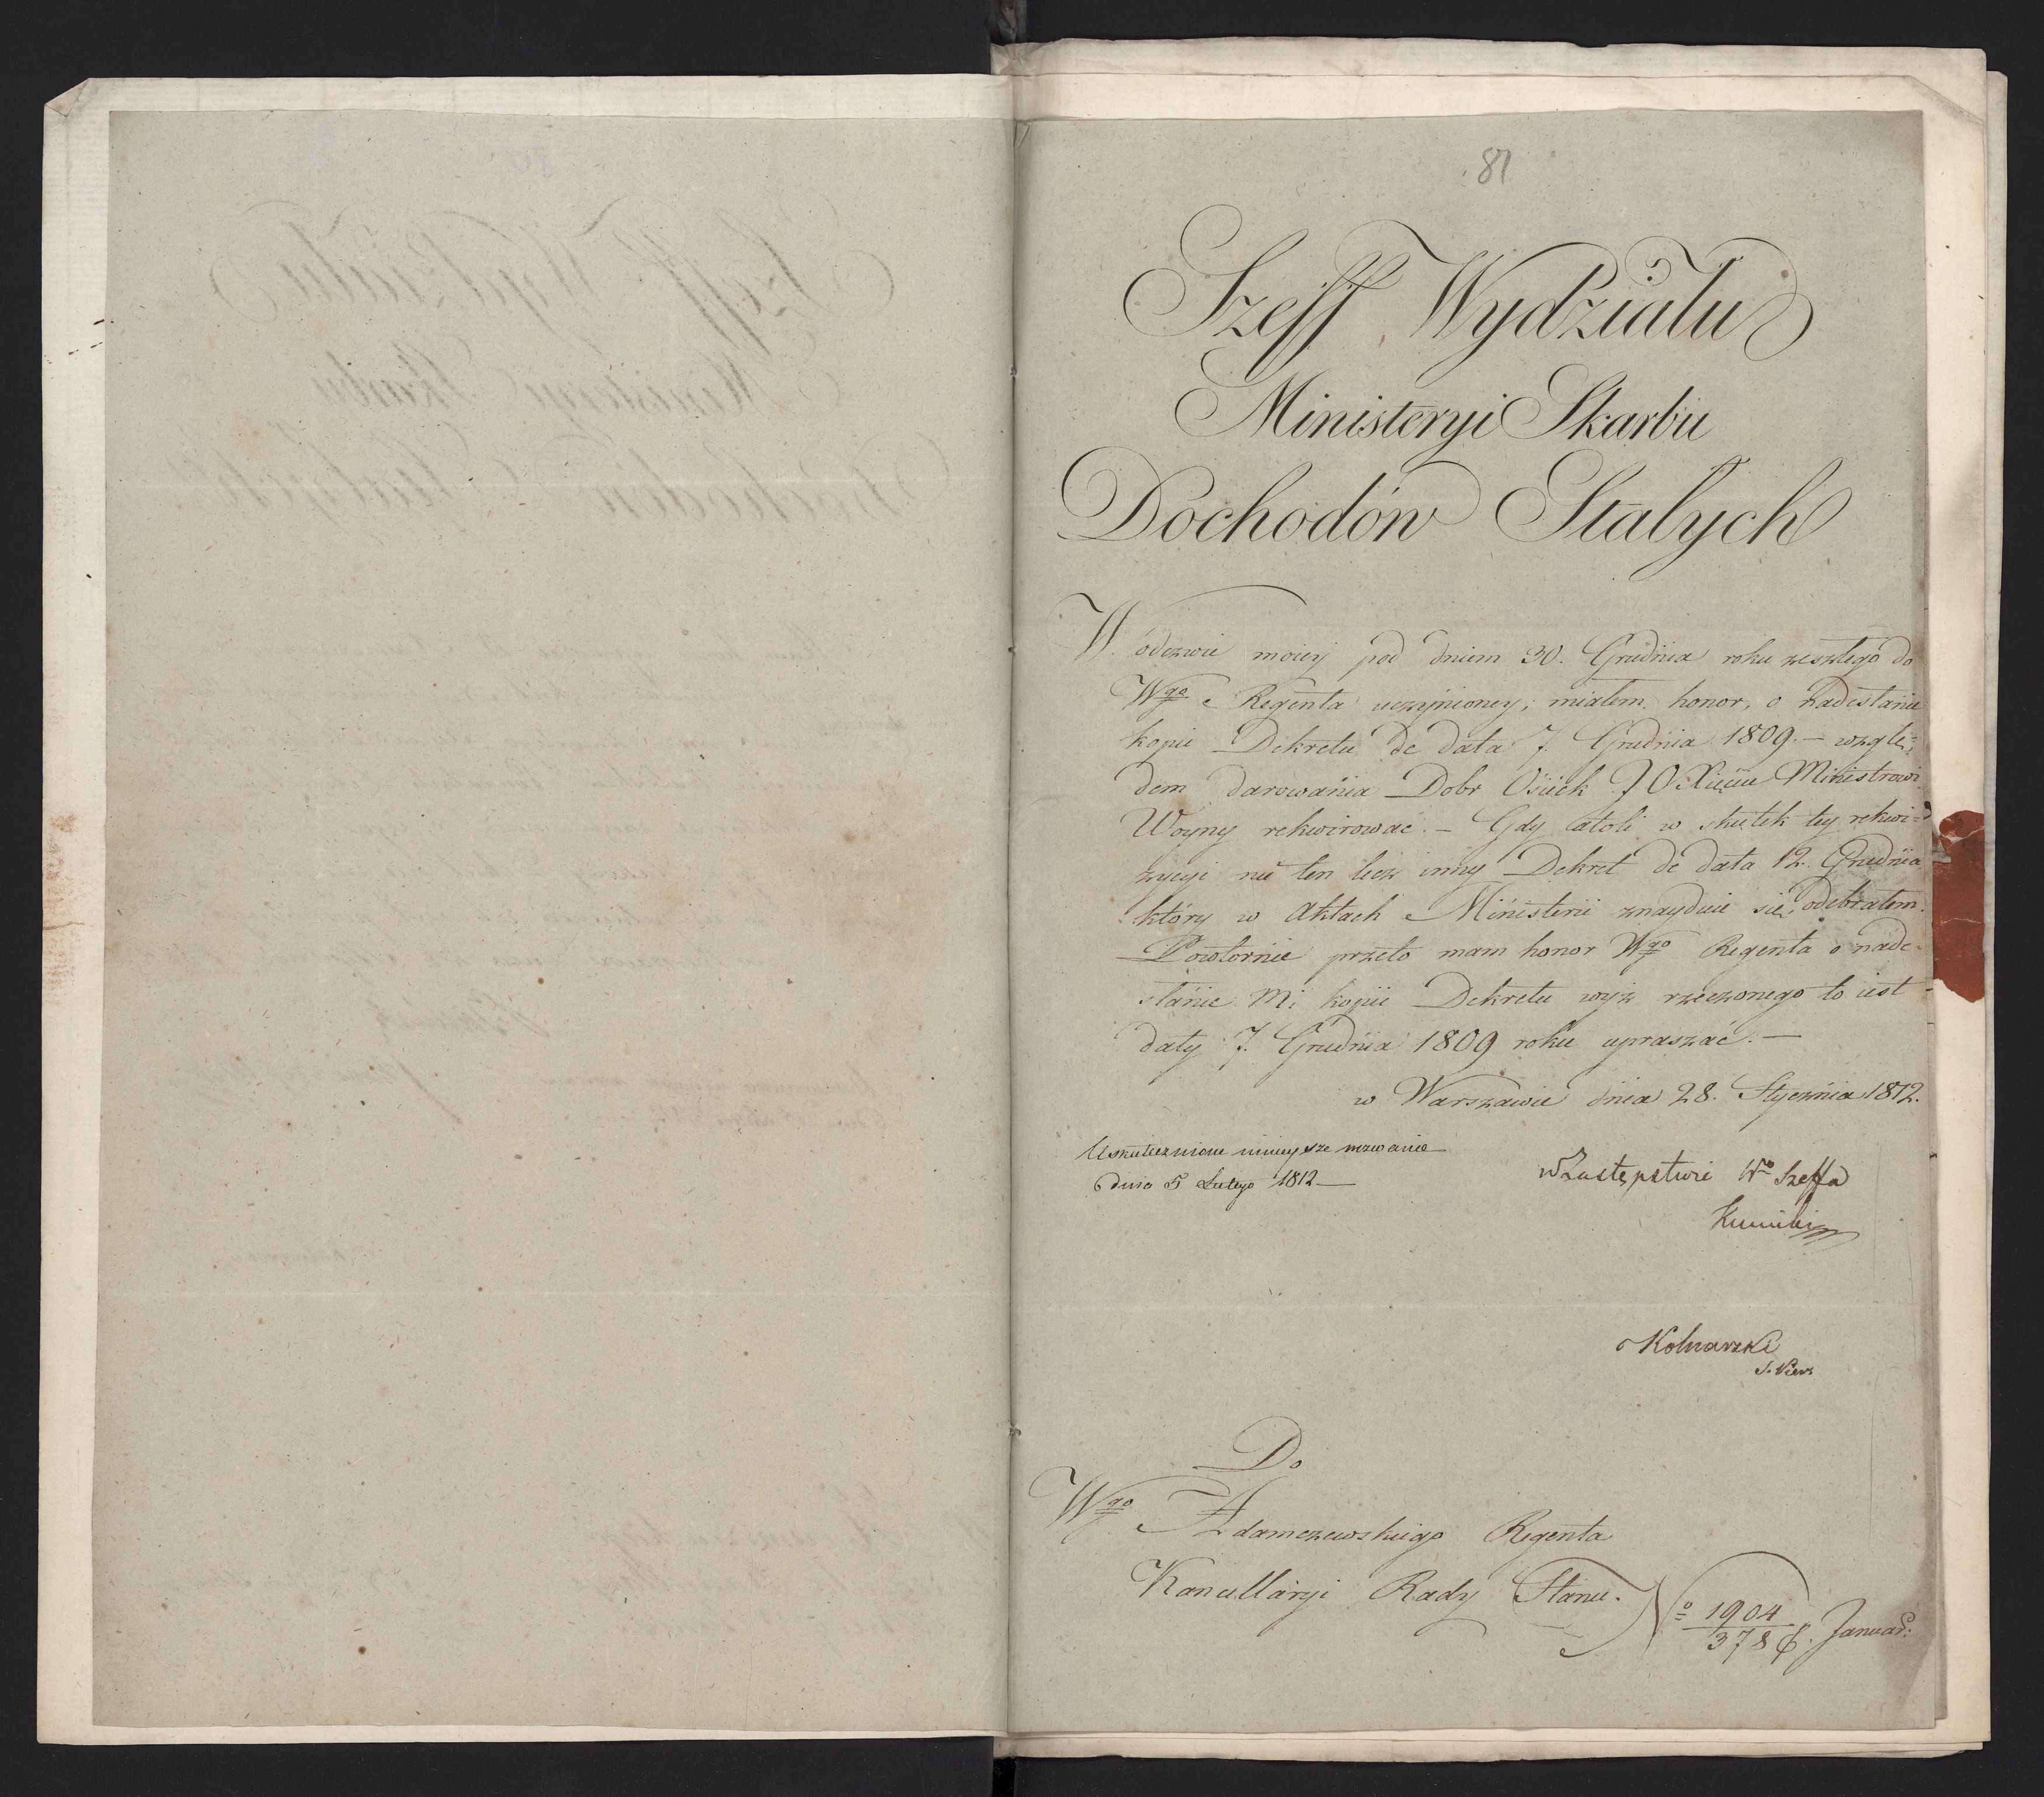 87
Szeff Wydziału
Ministeryi Skarbu
Dochodów Stałych
W odezwie moiey pod dniem 30. Grudnia roku zeszłego do
Wgo Regenta uczynioney, miałem honor, o nadesłanie
kopii Dekretu de data 7. Grudnia 1809. – wzglę=
dem darowania Dobr Osiek J O Xięciu Ministrowi
Woyny rekwirować. – Gdy atoli w skutek tey rekwi=
zycyi nie ten lecz inny Dekret de data 12. Grudnia
który w Aktach Ministerii znayduie się, odebrałem.
Powtornie przeto mam honor Wgo Regenta o nade=
słanie mi kopii Dekretu wyż rzeczonego to iest
daty 7. Grudnia 1809 roku upraszać. –
w Warszawie dnia 28. Stycznia 1812.
Uskutecznione ninieysze wezwanie
dnia 5 Lutego 1812 –
w Zastępstwie Wo Szeffa
Do
Wgo Adamczewskiego Regenta
Kancellaryi Rady Stanu.
No 1904
378 Januar: